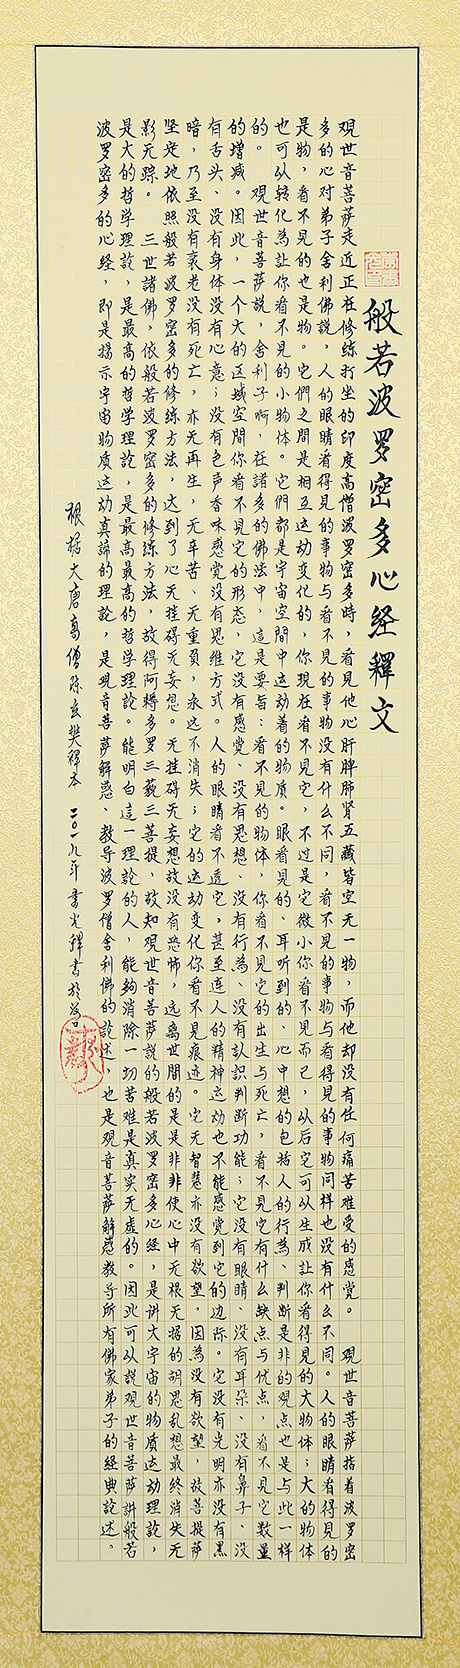 般若波罗密多心经釋文
观世音菩萨走近正在修练打坐的印度高僧波罗密多時，看見他心肝脾肺肾五藏皆空无一物，而他却没有任何痛苦难受的感觉。 观世音菩萨指着波罗密
多的心对弟子舍利佛説，人的眼睛看得見的事物与看不見的事物没有什么不同，看不見的事物与看得見的事物同样也没有什么不同。人的眼睛看得見的
是物，看不見的也是物。它們之間是相互运动变化的，你現在看不見它，不过是它微小你看不見而已，从后它可以生成让你看得見的大物体；大的物体
也可以转化為让你看不見的小物体。它們都是宇宙空間中运动着的物质。眼看見的、耳听到的、心中想的包括人的行為、判断是非的观点也是与此一样
的。 观世音菩萨説，舍利子啊，在諸多的佛法中，這是要旨：看不見的物体，你看不見它的出生与死亡，看不見它有什么缺点与优点，看不見它数量
的增减。因此，一个大的区域空間你看不見它的形态，它没有感觉、没有思想、没有行為、没有認識判断功能；它没有眼睛、没有耳朵、没有鼻子、没
有舌头、没有身体没有心意；没有色声香味感觉没有思维方式。人的眼睛看不透它，甚至连人的精神运动也不能感觉到它的边际。它没有光明亦没有黑
暗，乃至没有衰老没有死亡，亦无再生，无辛苦、无重負，永远不消失；它的运动变化你看不見痕迹。它无智慧亦没有欲望。因為没有欲望，故菩提萨
坚定地依照般若波罗密多的修练方法，达到了心无挂碍无妄想。无挂碍无妄想故没有恐怖，远离世間的是是非非使心中无根无据的胡思乱想最终消失无
影无踪。 三世諸佛，依般若波罗密多的修练方法，故得阿耨多罗三藐三菩提，故知观世音菩萨説的般若波罗密多心经，是讲大宇宙的物质运动理论，
是大的哲学理論，是最高的哲学理論，是最高最高的哲学理論。能明白這一理論的人，能夠消除一切苦难是真实无虚的。因此可以説观世音菩萨讲般若
波罗密多的心经，即是揭示宇宙物质运动真諦的理論，是观音菩萨解惑、教导波罗僧舍利佛的論述，也是观音菩萨解惑教导所有佛家弟子的经典論述。
根据大唐高僧陈玄奘釋本 二〇一九年